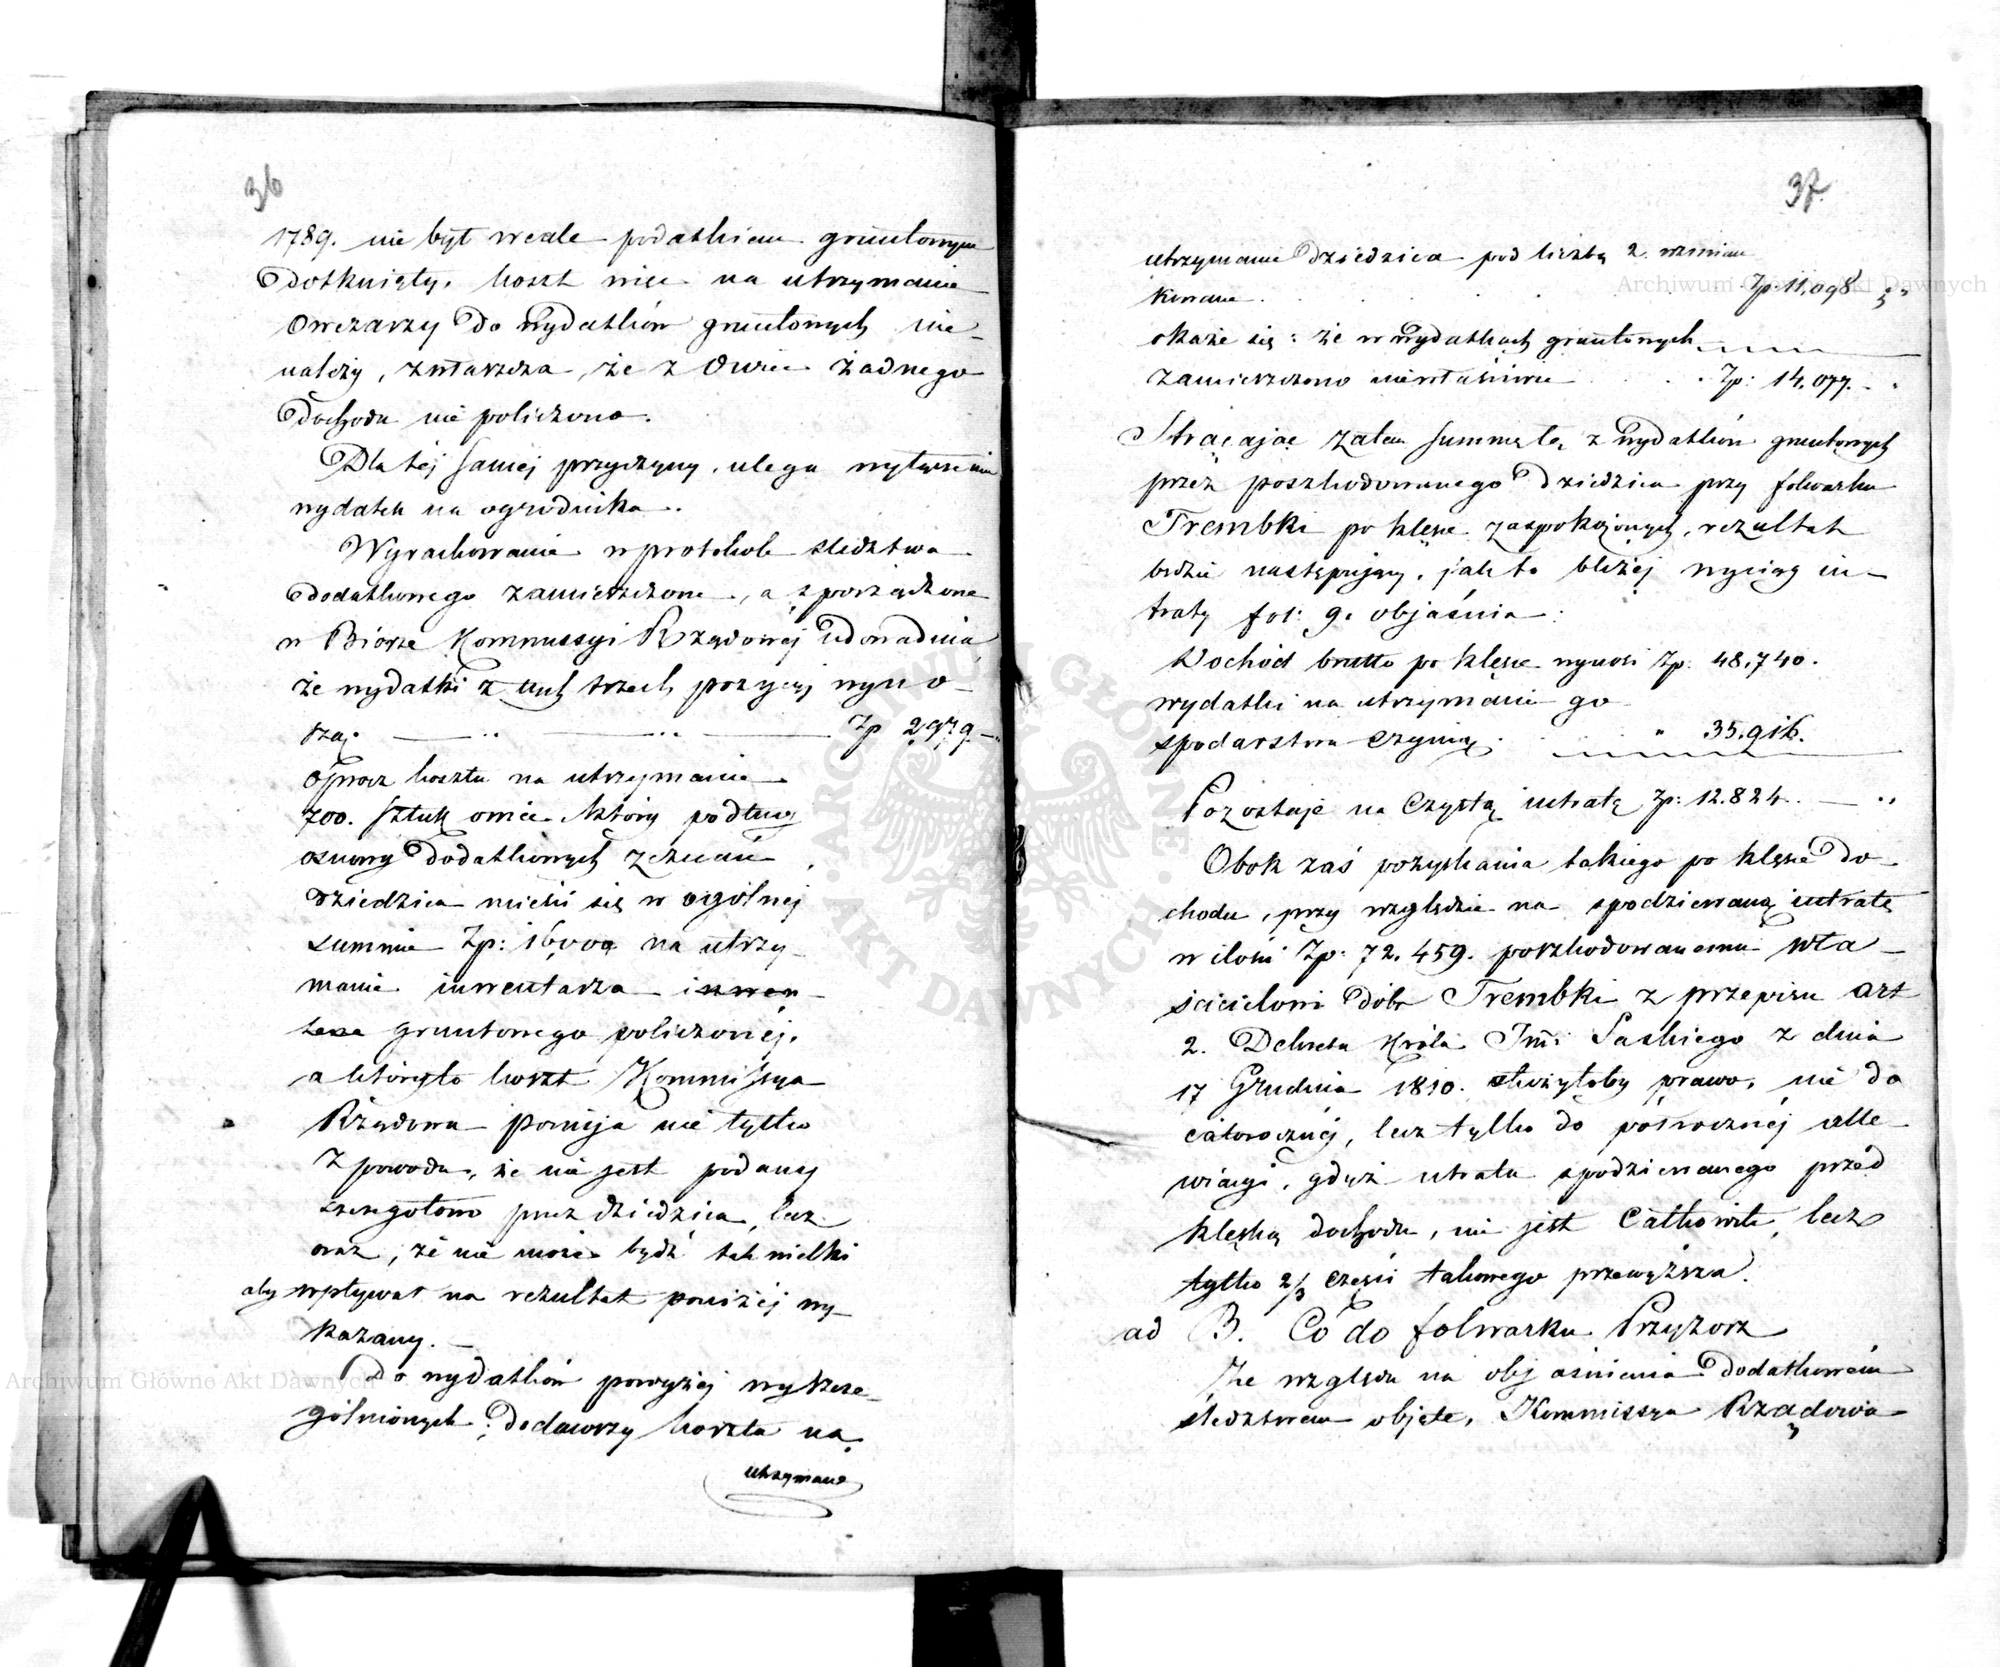 36
1789. nie był wcale podatkiem gruntowym
dotknięty, koszt więc na utrzymanie
owczarzy do wydatków gruntowych nie
należy, zwłaszcza, że z owiec żadnego
dochodu nie policzono.
Dla téj saméj przyczyny, ulega wyłączeniu
wydatek na ogrodnika.
Wyrachowanie w protokole śledztwa
dodatkowego zamieszczone, a sporządzone
w Biórze Kommissyi Rządowéj udowadnia,
że wydatki z tych trzech pozycyj wyno-
szą. Zp 2979 —
oprócz kosztu na utrzymanie
700. sztuk owiec który podług
osnowy dodatkowych zeznań
dziedzica mieści się w ogólnej
summie Zp: 16000 na utrzy-
manie inwentarza inwen-
tarza gruntowego policzonéj.
a któryto koszt Kommissya
Rządowa pomija nie tylko
z powodu, że nie jest podany
szczegółowo przez dziedzica, lecz
oraz, że nie może bydź tak wielki
aby wpływał na rezultat poniżéj wy-
kazany. —
Do wydatków powyżéj wyszcze-
gólnionych, dodawszy koszta na
utrzymanie
37.
utrzymanie dziedzica pod liczbą 2. wzmian
kowane Zp. 11,098
okaże się: że w wydatkach gruntowych
zamieszczono niewłaściwie Zp: 14,077. —
Strącając zatem summę tę z wydatków gruntowych
przez poszkodowanego dziedzica przy folwarku
Trembki po klęsce zaspokojonych, rezultat
będzie następujący, jak to bliżéj wyciąg in-
traty fol: 9. objaśnia:
Dochód brutto po klęsce wynosi Zp. 48,740.
wydatki na utrzymanie go
spodarstwa czynią. " 35.916.
Pozostaje na czystą intratę Zp: 12.824. —
Obok zaś pozyskania takiego po klęsce do
chodu, przy względzie na spodziewaną intratę
w ilości Zp: 72.459. poszkodowanemu wła-
ścicielowi dóbr Trembki z przepisu art
2. Dekretu Króla Jmci Saskiego z dnia
17 Grudnia 1810. służyłoby prawo, nie do
całorocznéj, lecz tylko do półrocznéj alle-
wiacyi, gdyż utrata spodziewanego przed
klęską dochodu, nie jest całkowitą, lecz
tylko 2/3 części takowego przewyższa.
ad B. Co do folwarku Przyzorz
Ze względu na objaśnienia dodatkowém
śledztwem objęte, Kommissya Rządowa
Archiwum Główne Akt Dawnych
Archiwum Główne Akt Dawnych
ARCHIWUM GŁÓWNE · AKT DAWNYCH ·